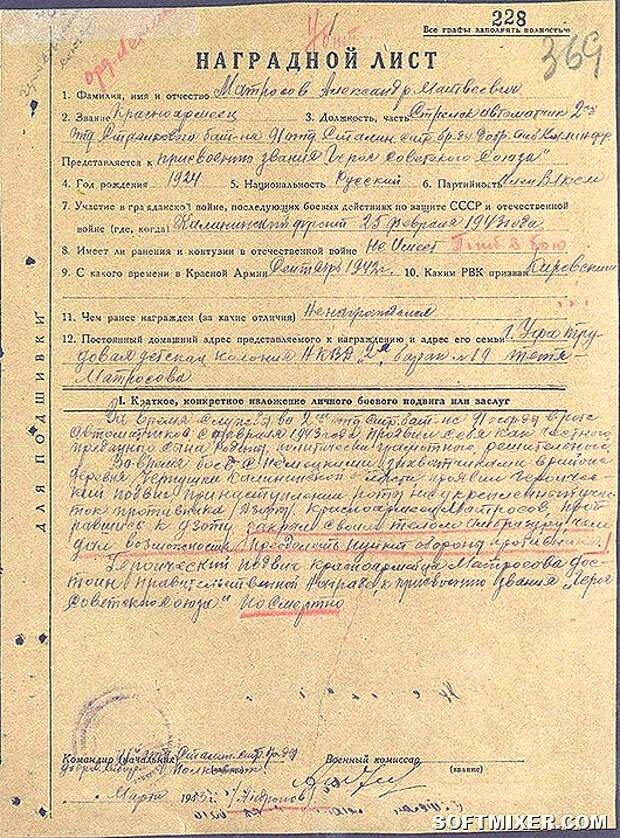 228
Все графы заполнять полностью
369
НАГРАДНОЙ ЛИСТ
1. Фамилия, имя и отчество Матросов Александр Матвеевич
2. Звание Красноармеец 3. Должность, часть Стрелок автоматчик 2го
отд Стрелкового бат-на 91 отд Сталин стр. бр-ды добр. Сибиряков
Представляется к присвоению звания "Героя Советского Союза"
4. Год рождения 1924 5. Национальность Русский 6. Партийность член ВЛКСМ
7. Участие в гражданской войне, последующих боевых действиях по защите СССР и отечественной
войне (где, когда) Калининский фронт 25 февраля 1943 года
8. Имеет ли ранения и контузии в отечественной войне Не имеет Погиб в бою
9. С какого времени в Красной Армии Сентябрь 1942г. 10. Каким РВК призван Кировским
11. Чем ранее награжден (за какие отличия) Не награждался
12. Постоянный домашний адрес представляемого к награждению и адрес его семьи г. Уфа тру-
довая детская колония НКВД "2", барак №19 тетя
Матросова
ДЛЯ ПОДШИВКИ
I. Краткое, конкретное изложение личного боевого подвига или заслуг
За время службы во 2м отд стр бат-не 91 оср-ды в роте
автоматчиков с февраля 1943 года проявил себя как честного
преданного сына Родины, политически грамотного, решительного.
Во время боев с немецкими захватчиками в районе
деревня Чернушки Калининской области проявил героичес-
кий подвиг при наступлении роты на укрепленный учас-
ток противника (Дзоты) Красноармеец Матросов, проб-
равшись к дзоту закрыл своим телом амбразуру, чем
дал возможность преодолеть пункт обороны противника.
Героический подвиг красноармейца Матросова дос-
тоин правительственной награды, к присвоению звания "Героя
Советского Союза" Посмертно
Командир (начальник) Сталин. стр. бр-ды
Полковник
Военный комиссар
(звание)
Марта 1943г. /Андронов/
SOFTMIXER.COM